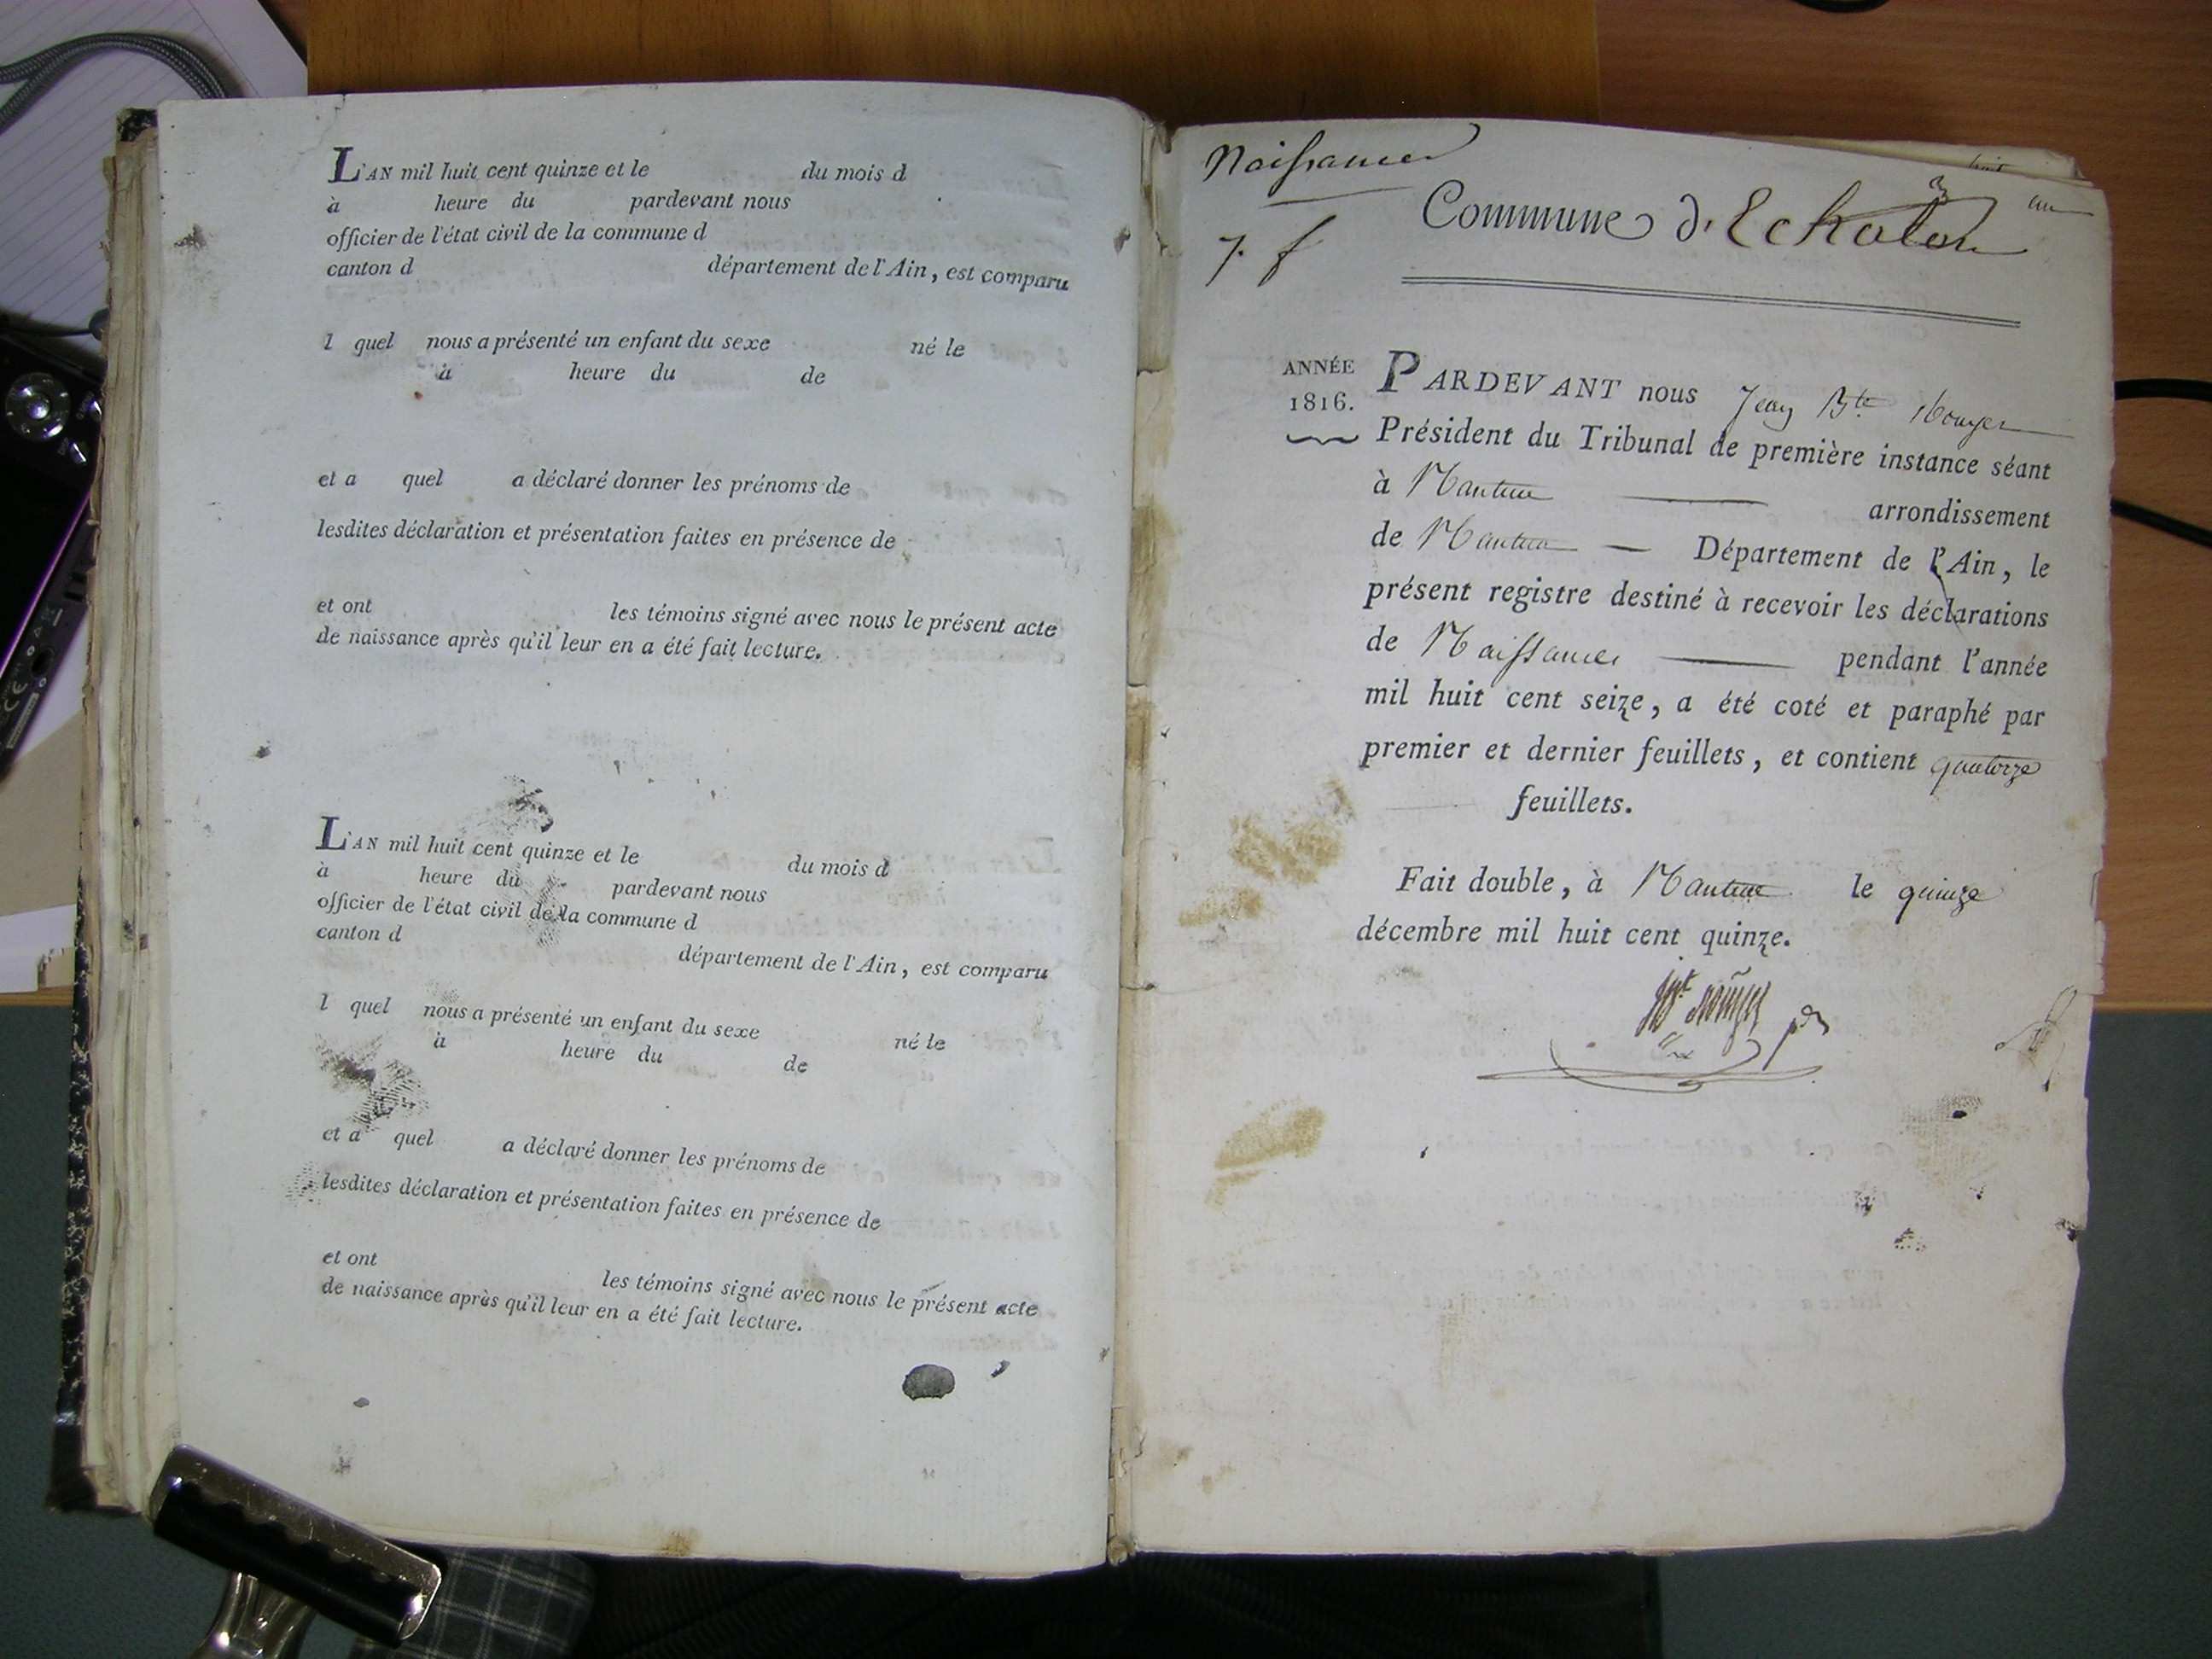 L'AN mil huit cent quinze et le du mois d
à heure du pardevant nous
officier de l'état civil de la commune d
canton d département de l'Ain, est comparu
l quel nous a présenté un enfant du sexe né le
à heure du de
et a quel a déclaré donner les prénoms de
lesdites déclaration et présentation faites en présence de
et ont les témoins signé avec nous le présent acte
de naissance après qu'il leur en a été fait lecture.
L'AN mil huit cent quinze et le du mois d
à heure du pardevant nous
officier de l'état civil de la commune d
canton d département de l'Ain, est comparu
l quel nous a présenté un enfant du sexe né le
à heure du de
et a quel a déclaré donner les prénoms de
lesdites déclaration et présentation faites en présence de
et ont les témoins signé avec nous le présent acte
de naissance après qu'il leur en a été fait lecture.
Naissances
Commune d'Echalon
7. f
ANNÉE
1816.
PARDEVANT nous Jean Bte
Président du Tribunal de première instance séant
à Nantua arrondissement
de Nantua Département de l'Ain, le
présent registre destiné à recevoir les déclarations
de Naissances pendant l'année
mil huit cent seize, a été coté et paraphé par
premier et dernier feuillets, et contient quatorze
feuillets.
Fait double, à Nantua le quinze
décembre mil huit cent quinze.